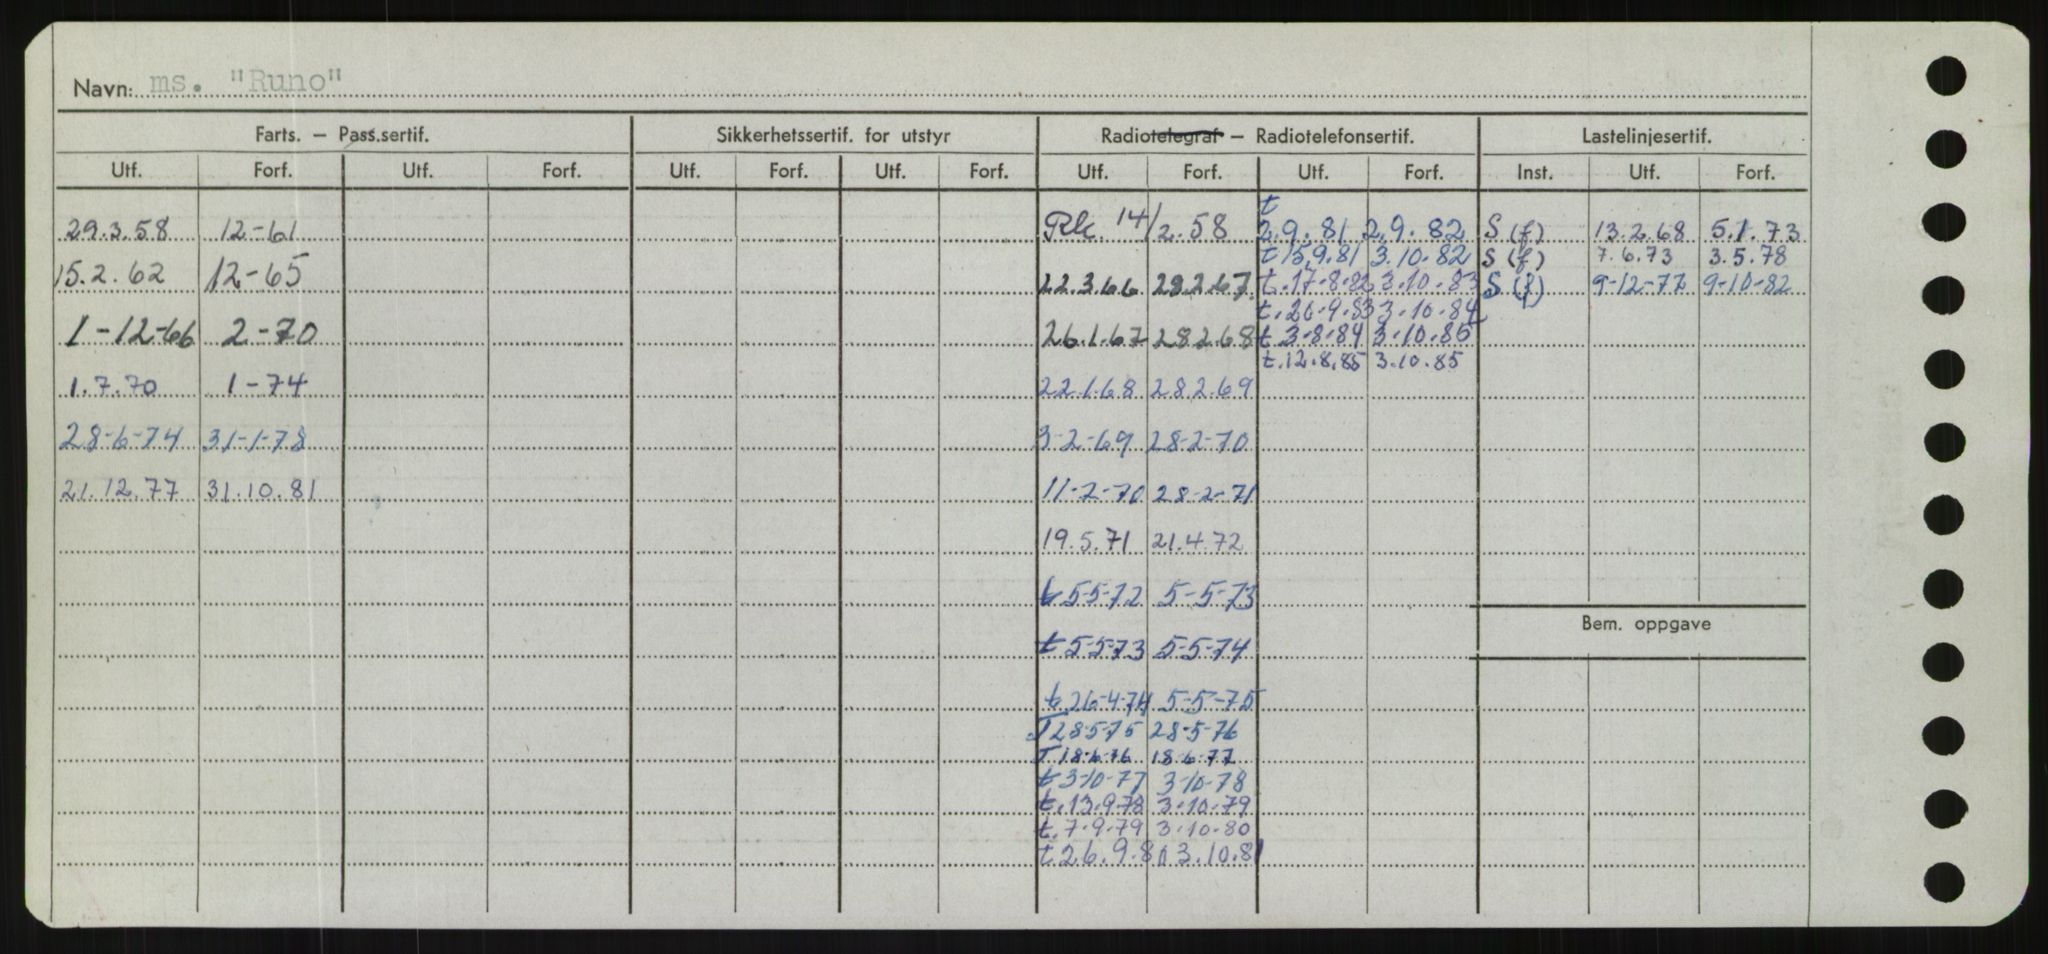 Navn: ms. "Runo"
Farts. — Pass.sertif. Sikkerhetssertif. for utstyr Radiotelegraf — Radiotelefonsertif. Lastelinjesertif.
Utf. Forf. Utf. Forf. Utf. Forf. Utf. Forf. Utf. Forf. Utf. Forf. Inst. Utf. Forf.
29.3.58 12-61
15.2.62 12-65
1-12-66 2-70
1.7.70 1-74
28-6-74 31-1-78
21.12.77 31.10.81
14/2.58
22.3.66 28.2.67.
26.1.67 28.2.68
22.1.68 28.2.69
3-2-69 28-2-70
11-2-70 28-2-71
19.5.71 21.4.72
t 5-5-72 5-5-73
t 5-5-73 5-5-74
t 26-4-74 5-5-75
T 28-5-75 28-5-76
T 18-6-76 18-6-77
t 3-10-77 3-10-78
t. 13.9.78 3.10.79
t. 7.9.79 3.10.80
t 26.9.80 3.10.81
t
2.9.81 2.9.82
t 15.9.81 3.10.82
t. 17.8.82 3.10.83
t. 20.9.83 3.10.84
t 3.8.84 3.10.85
t. 12.8.85 3.10.85
S (f) 13.2.68 5.1.73
S (f) 7.6.73 3.5.78
S (f) 9-12-77 9-10-82
Bem. oppgave